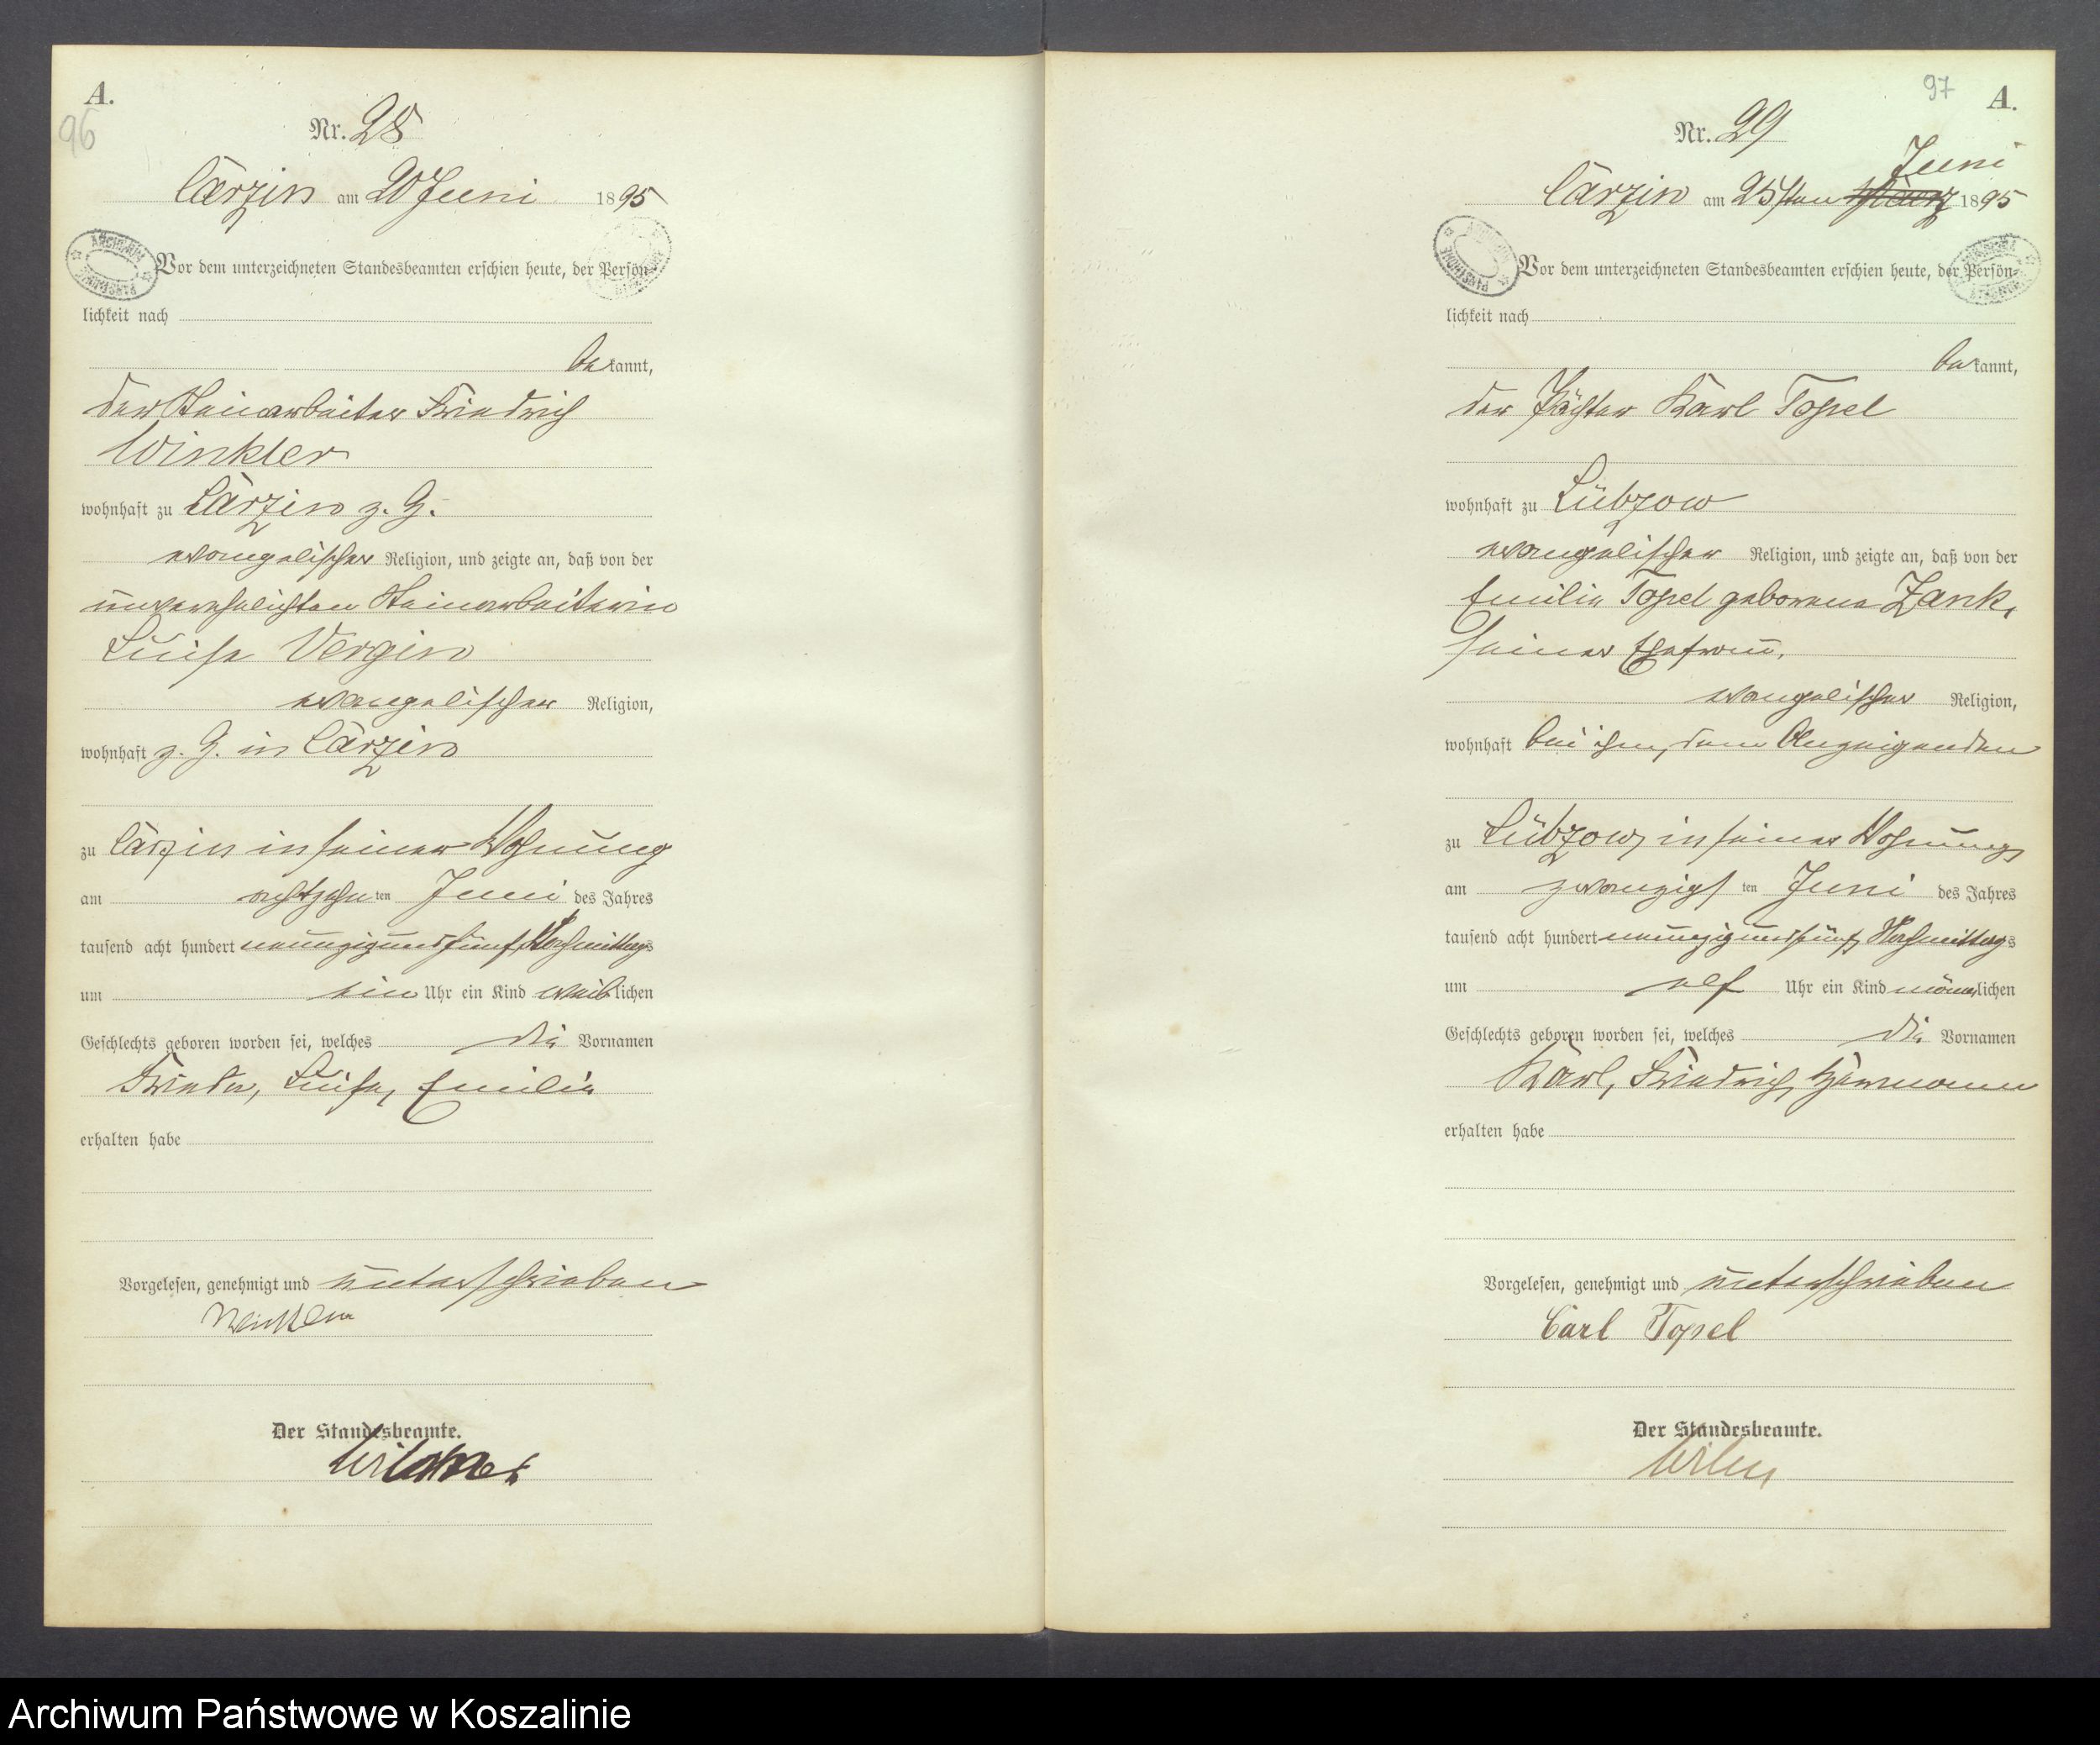 A.
96
Nr. 28
Carzin am 20 Juni 1895
Vor dem unterzeichneten Standesbeamten erschien heute, der Persön-
lichkeit nach
bekannt,
der Steinarbeiter Friedrich
Winkler
wohnhaft zu Carzin z. G.
evangelischer Religion, und zeigte an, daß von der
unverehelichten Steinarbeiterin
Luise Vergin
evangelischer Religion,
wohnhaft z. G. in Carzin
zu Carzin in seiner Wohnung
am achtzehnten Juni des Jahres
tausend acht hundert neunzig und fünf, Nachmittags
um ein Uhr ein Kind weiblichen
Geschlechts geboren worden sei, welches die Vornamen
Frieda, Luise, Emilie
erhalten habe
Vorgelesen, genehmigt und unterschrieben
Der Standesbeamte.
97
A.
Nr. 29
Juni
Carzin am 25sten März 1895
Vor dem unterzeichneten Standesbeamten erschien heute, der Persön-
lichkeit nach
bekannt,
der Pächter Karl Topel
wohnhaft zu Lübzow
evangelischer Religion, und zeigte an, daß von der
Emilie Topel geborene Zank,
seiner Ehefrau,
evangelischer Religion,
wohnhaft bei ihm, dem Anzeigenden
zu Lübzow, in seiner Wohnung,
am zwanzigsten Juni des Jahres
tausend acht hundert neunzig und fünf, Nachmittags
um elf Uhr ein Kind männlichen
Geschlechts geboren worden sei, welches die Vornamen
Karl, Friedrich, Hermann
erhalten habe
Vorgelesen, genehmigt und unterschrieben
Carl Topel
Der Standesbeamte.
Archiwum Państwowe w Koszalinie